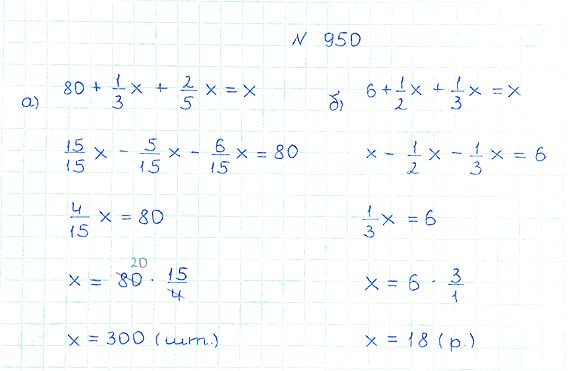 N 950
а) 80 + 1/3 x + 2/5 x = x
15/15 x - 5/15 x - 6/15 x = 80
4/15 x = 80
20
x = 80 · 15/4
x = 300 (шт.)
б) 6 + 1/2 x + 1/3 x = x
x - 1/2 x - 1/3 x = 6
1/3 x = 6
x = 6 · 3/1
x = 18 (р.)